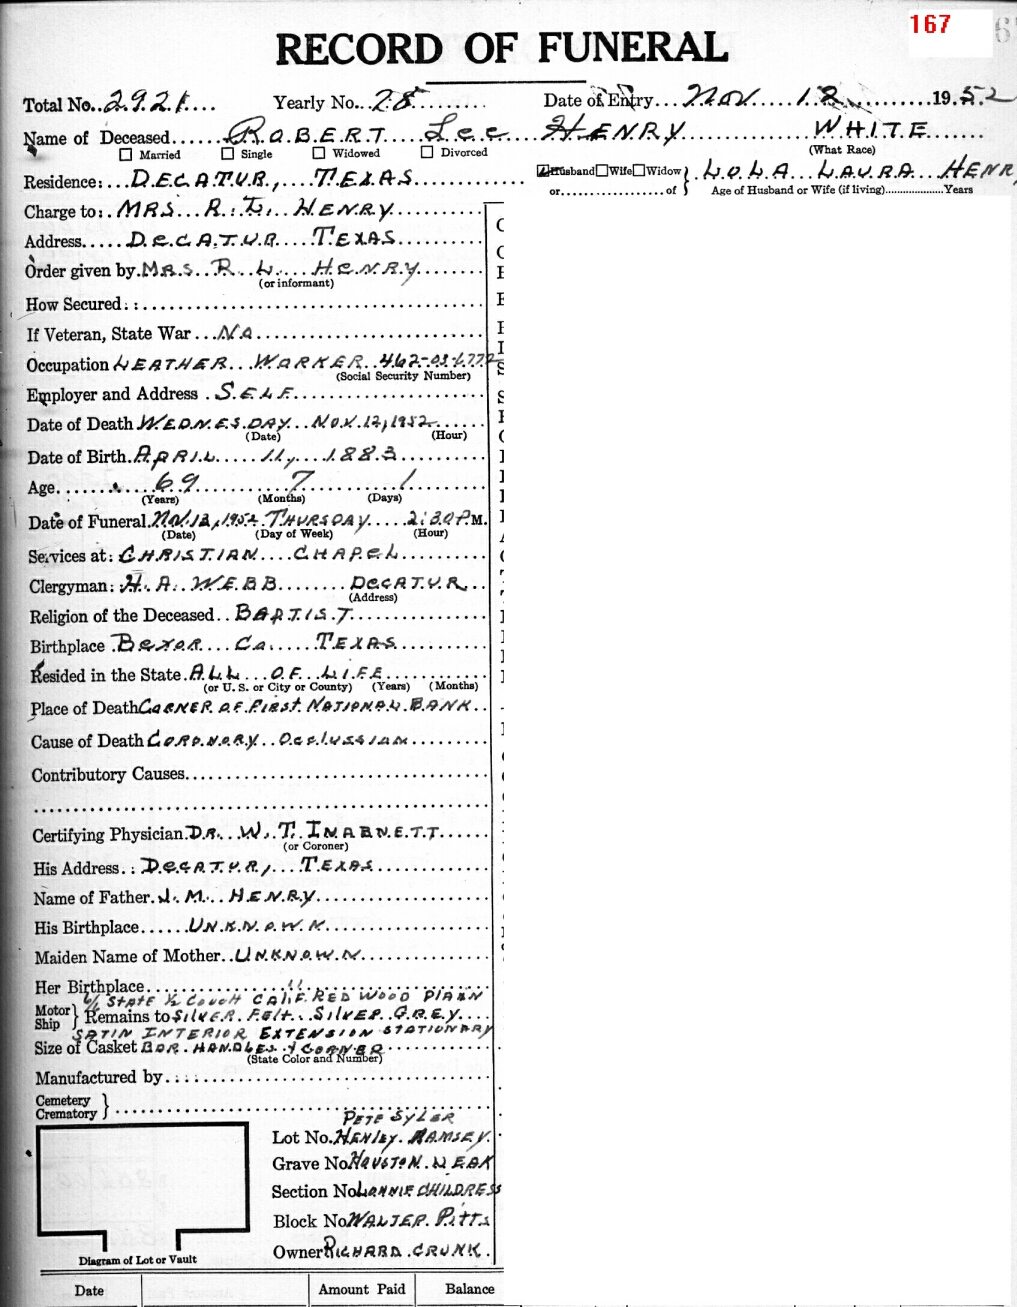 167
RECORD OF FUNERAL
Total No. 2921 Yearly No. 28 Date of Entry Nov. 12 1952
Name of Deceased ROBERT Lee HENRY WHITE
Married Single Widowed Divorced (What Race)
Residence: DECATUR, TEXAS Husband Wife Widow or of LOLA LAURA HENR
Age of Husband or Wife (if living) Years
Charge to: MRS R. L. HENRY
Address DECATUR TEXAS
Order given by MRS. R. L. HENRY
(or informant)
How Secured:
If Veteran, State War NO
Occupation LEATHER WORKER 462-03-6772
(Social Security Number)
Employer and Address SELF
Date of Death WEDNESDAY NOV. 12, 1952
(Date) (Hour)
Date of Birth APRIL 11, 1883
Age 69 7 1
(Years) (Months) (Days)
Date of Funeral Nov. 13, 1952 THURSDAY 2:30 P M.
(Date) (Day of Week) (Hour)
Services at: CHRISTIAN CHAPEL
Clergyman: H. A. WEBB DECATUR
(Address)
Religion of the Deceased BAPTIST
Birthplace BEXAR Co. TEXAS
Resided in the State ALL OF LIFE
(or U. S. or City or County) (Years) (Months)
Place of Death CORNER OF FIRST NATIONAL BANK
Cause of Death CORONORY OCCLUSSION
Contributory Causes
Certifying Physician DR. W. T. INABNETT
(or Coroner)
His Address: DECATUR, TEXAS
Name of Father J. M. HENRY
His Birthplace UNKNOWN
Maiden Name of Mother UNKNOWN
Her Birthplace "
6/6 STATE 1/2 COUCH CALIF. RED WOOD PLAIN
Motor Ship Remains to SILVER FELT SILVER GREY
SATIN INTERIOR EXTENSION STATIONARY
Size of Casket BAR HANDLES & CORNER
(State Color and Number)
Manufactured by
Cemetery
Crematory
PETE SYLER
Lot No. HENLEY RAMSEY
Grave No. HOUSTON NEAK
Section No. LONNIE CHILDRESS
Block No. WALTER PITTS
Owner RICHARD CRUNK
Diagram of Lot or Vault
Date Amount Paid Balance